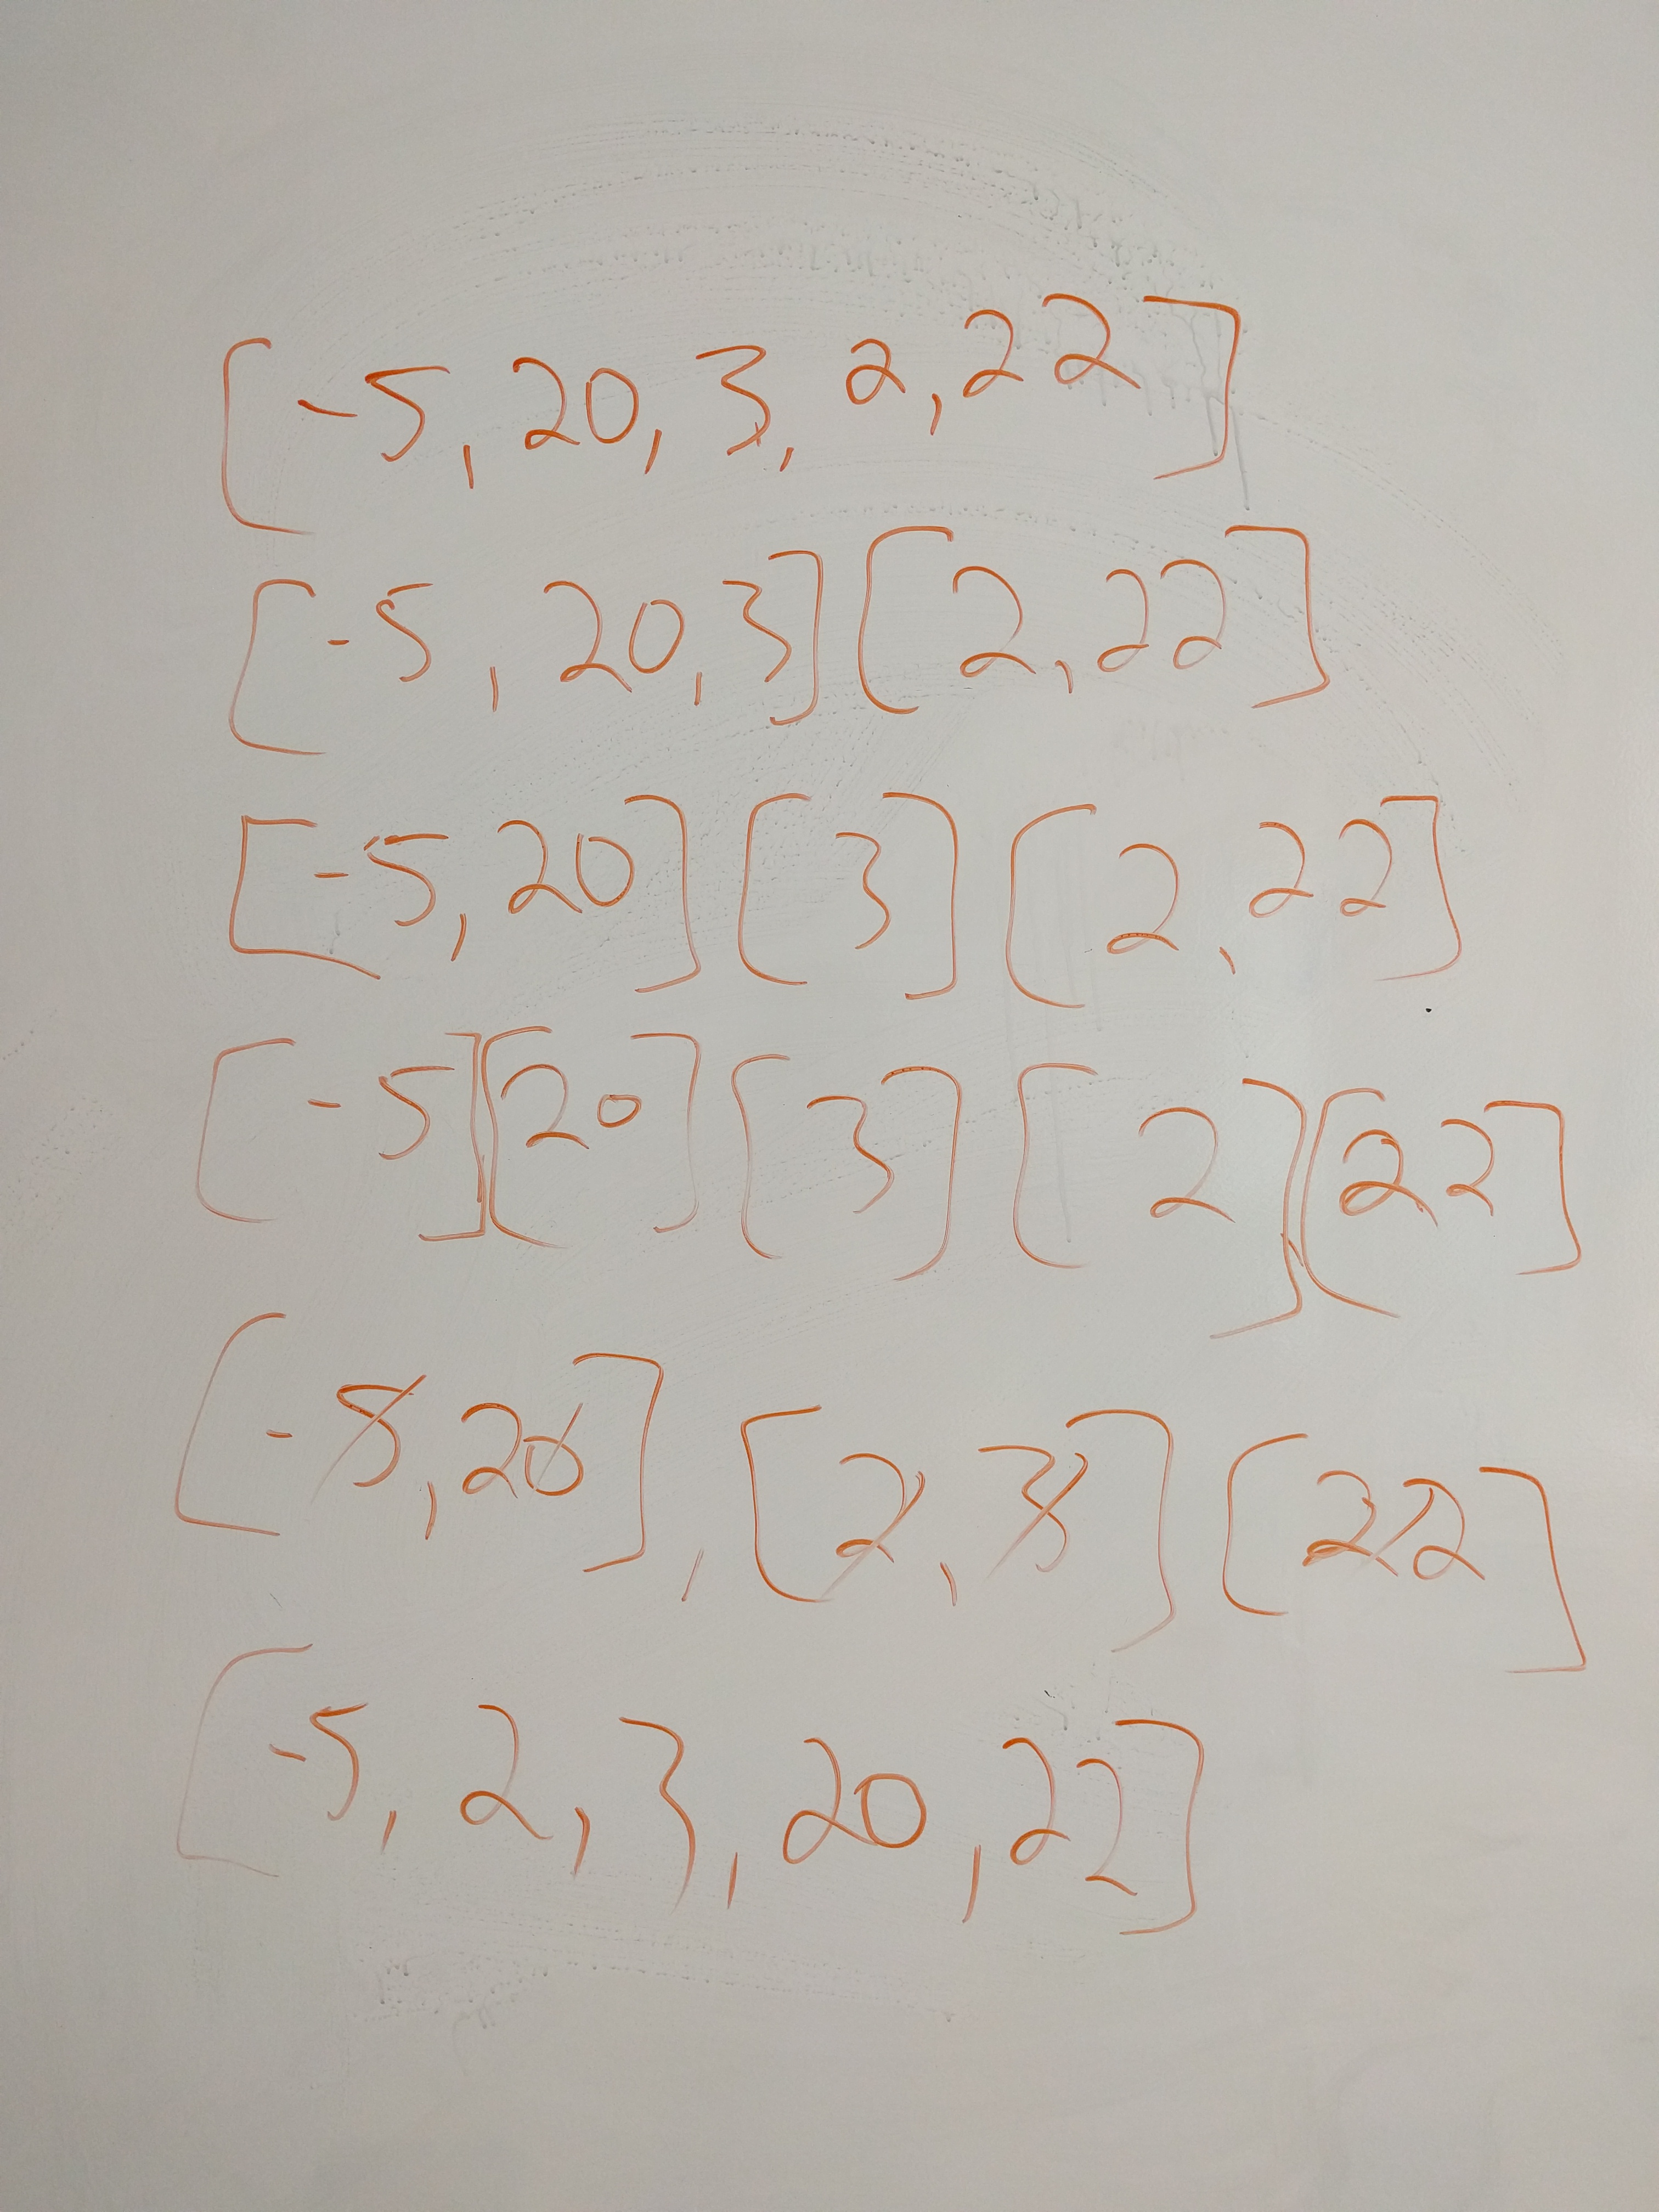 [-5, 20, 3, 2, 22]
[-5, 20, 3] [2, 22]
[-5, 20] [3] [2, 22]
[-5] [20] [3] [2] [22]
[-5, 20], [2, 3] [22]
[-5, 2, 3, 20, 22]